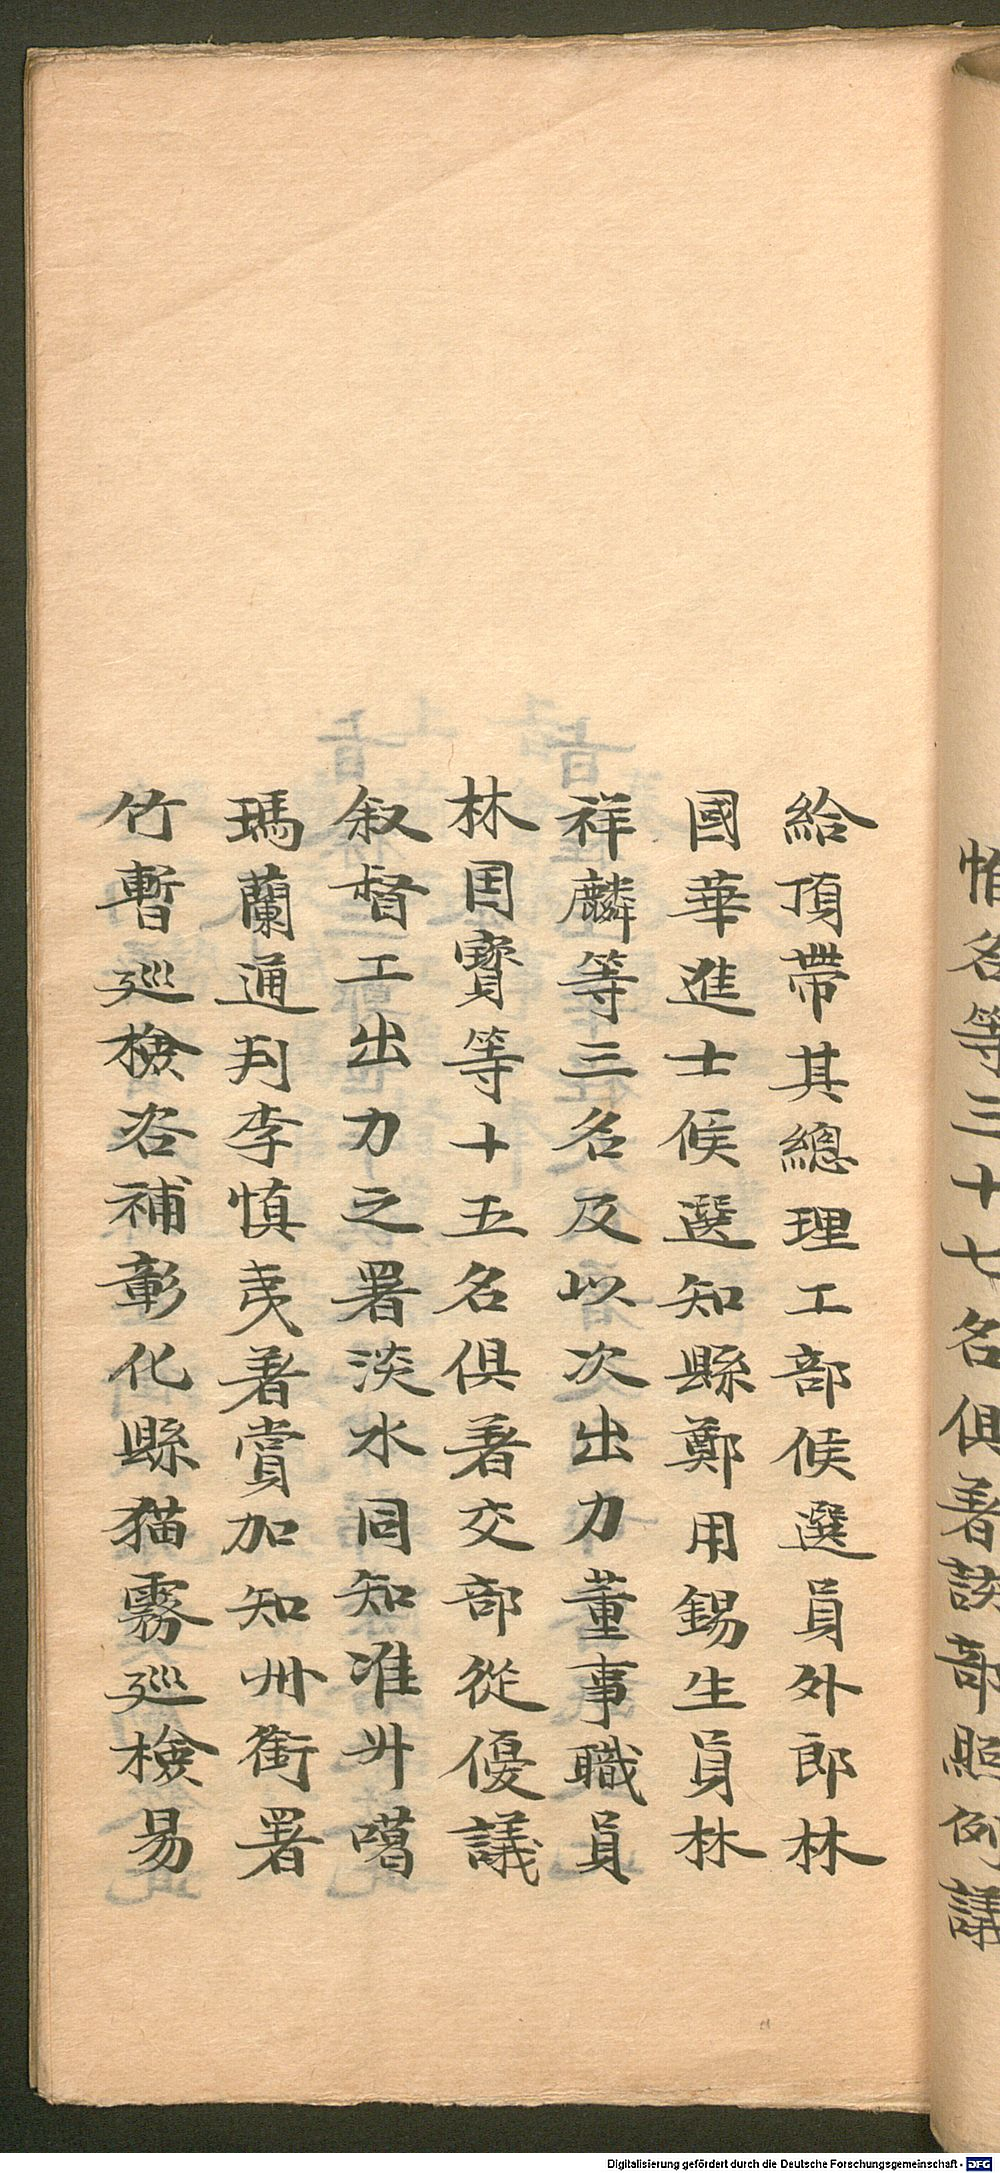 惟名等三十七名俱著該部照例議
給頂帶其總理工部候選員外郎林
國華進士候選知縣鄭用錫生員林
祥麟等三名及以次出力董事職員
林國寶等十五名俱著交部從優議
叙督工出力之署淡水同知准升噶
瑪蘭通判李慎彝著賞加知州銜署
竹塹巡檢咨補彰化縣猫霧巡檢易
Digitalisierung gefördert durch die Deutsche Forschungsgemeinschaft - DFG